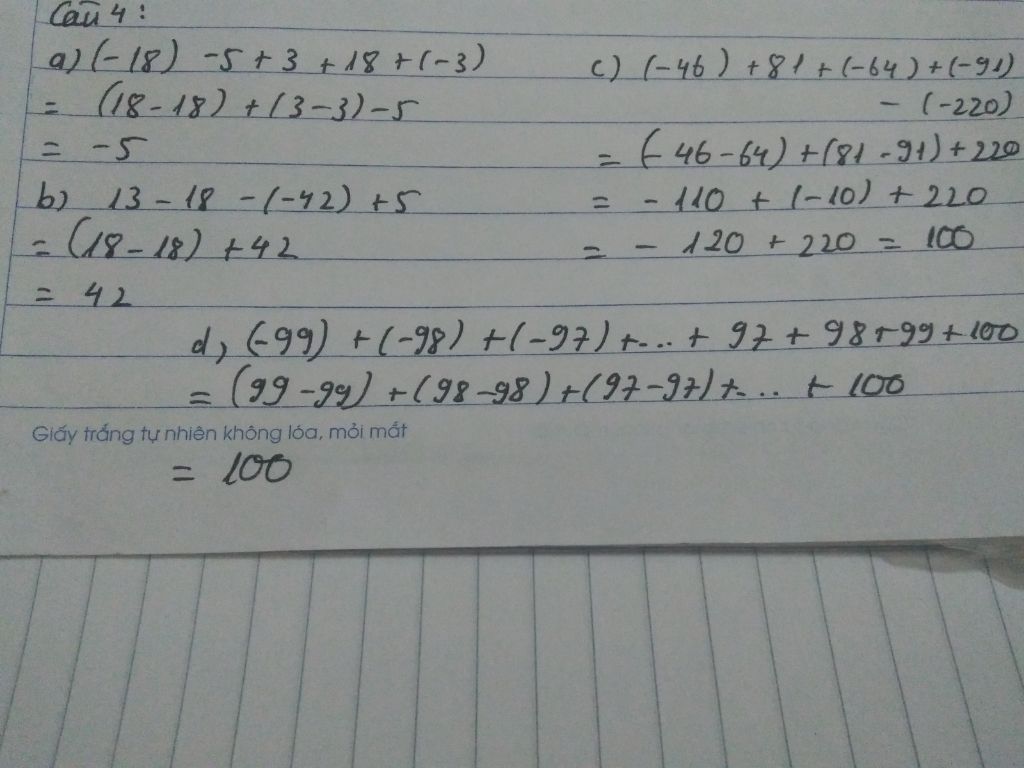 Câu 4:
a) (-18) -5 + 3 + 18 + (-3)
= (18 - 18) + (3 - 3) - 5
= -5
b) 13 - 18 - (-42) + 5
= (18 - 18) + 42
= 42
c) (-46) + 81 + (-64) + (-91)
- (-220)
= (-46 - 64) + (81 - 91) + 220
= - 110 + (-10) + 220
= - 120 + 220 = 100
d, (-99) + (-98) + (-97) + ... + 97 + 98 + 99 + 100
= (99 - 99) + (98 - 98) + (97 - 97) + ... + 100
Giấy trắng tự nhiên không lóa, mỏi mắt
= 100